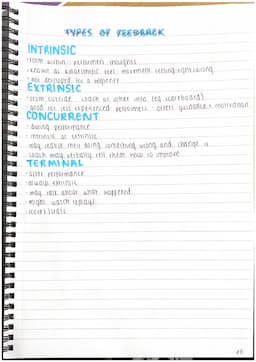 TYPES OF FEEDBACK
INTRINSIC
· from within performers insights
· known as kinaesthetic feel movement feeling right/wrong
· not developed for a beginner
EXTRINSIC
· from outside coach or other info (eg scoreboard)
· good for less experienced performers offers guidance + motivation
CONCURRENT
· during performance
· intrinsic or extrinsic
· may realise they doing something wrong and change it
· coach may verbally tell them how to improve
TERMINAL
· after performance
· always extrinsic
· may talk about what happened
· might watch replays